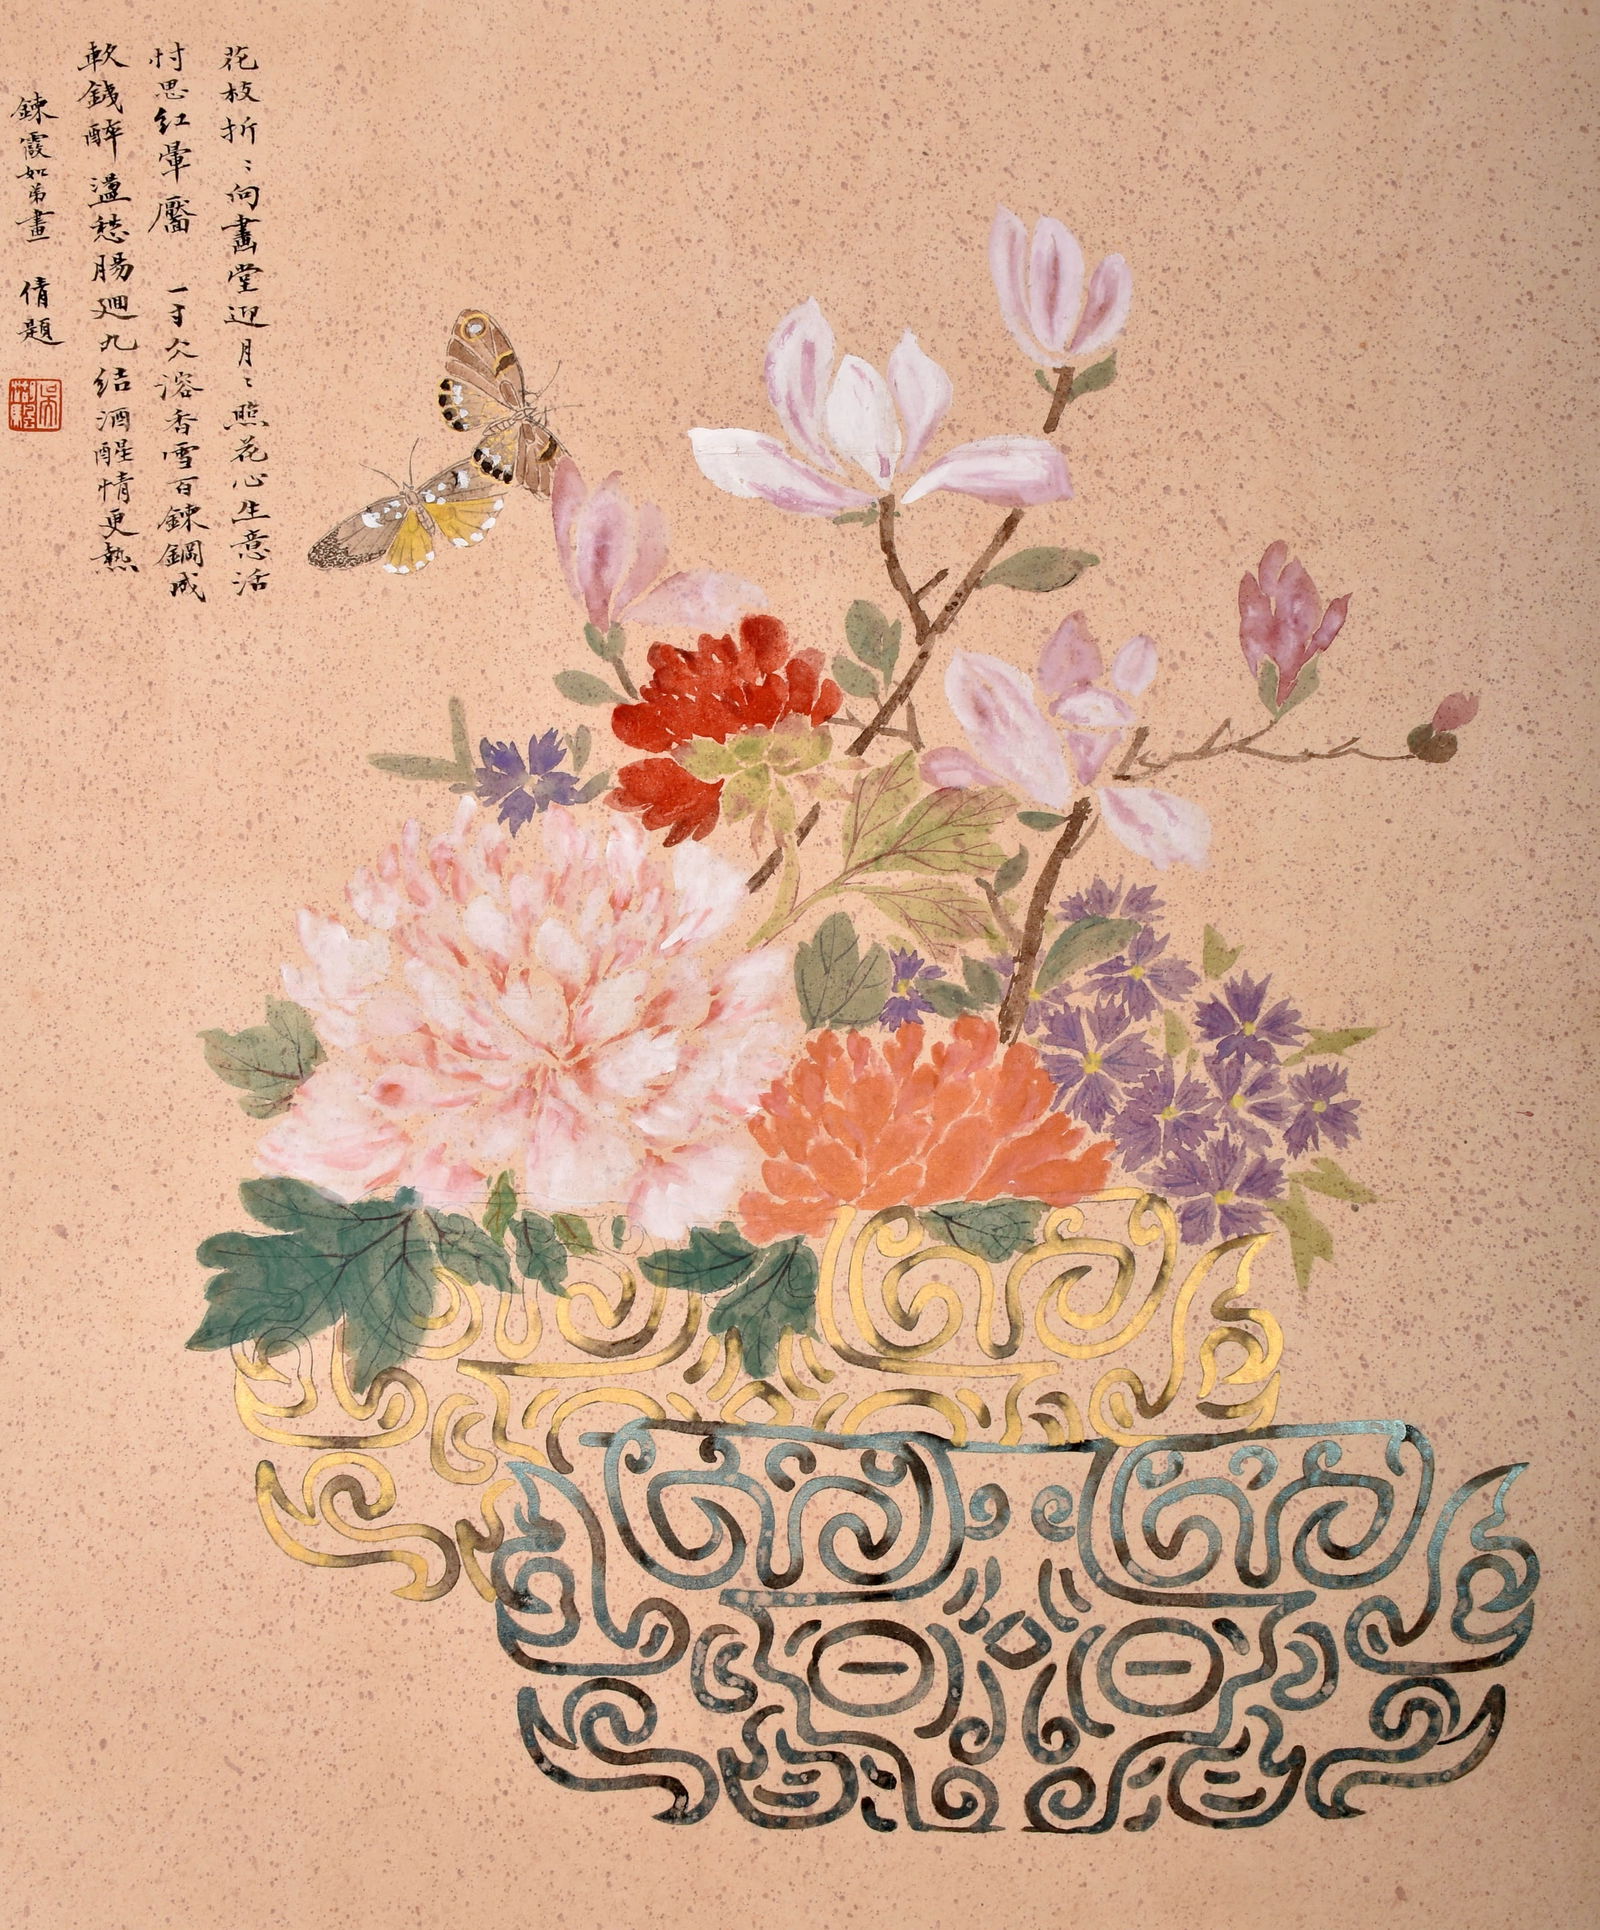 花枝折〻向畫堂迎月〻照花心生意活
忖思紅暈靨 一寸欠溶香雪百鍊鋼成
軟錢醉盪愁腸廻九結酒醒情更熱
鍊霞如弟畫 倩題